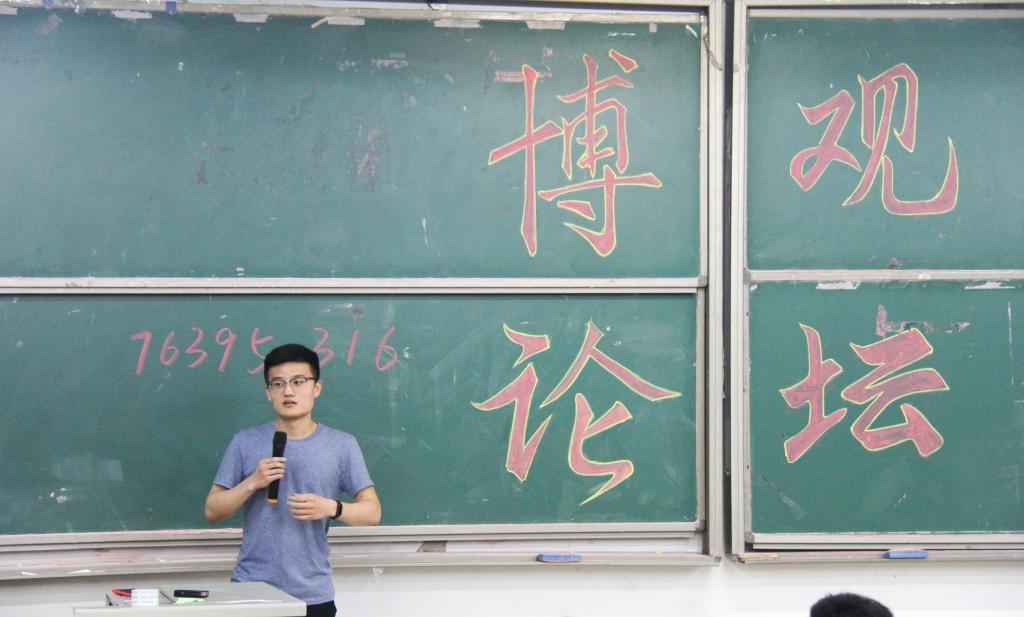 博观
论坛
76395 316